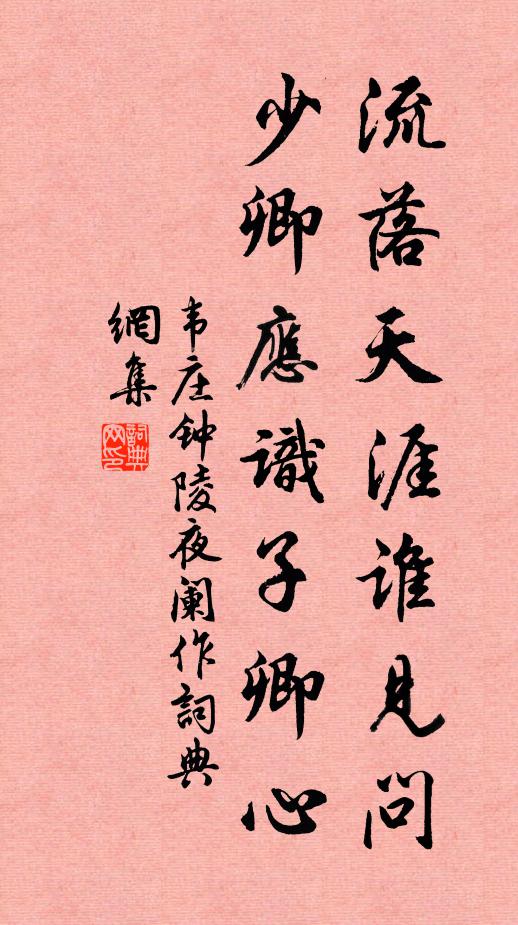 流落天涯谁見问
少卿應識子卿心
韦庄钟陵夜阑作詞典
網集
詞典
网印